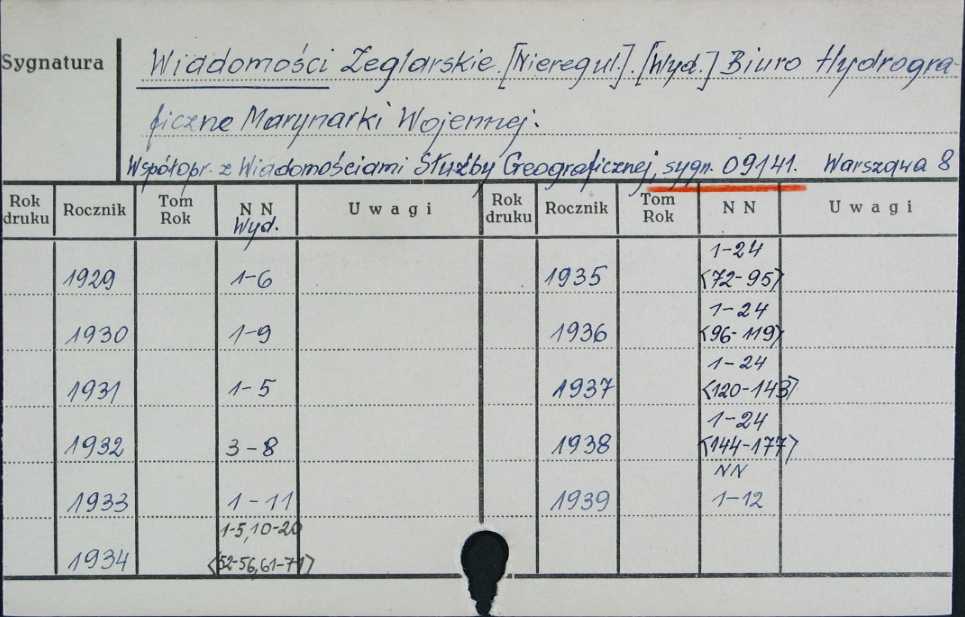 Sygnatura
Wiadomości Żeglarskie. [Nieregul.]. [Wyd.] Biuro Hydrogra-
ficzne Marynarki Wojennej.
Współopr. z Wiadomościami Służby Geograficznej, sygn. 09141. Warszawa 8
Rok druku Rocznik Tom Rok N N Wyd. Uwagi Rok druku Rocznik Tom Rok N N Uwagi
1929 1-6 1935 1-24 <72-95>
1930 1-9 1936 1-24 <96-119>
1931 1-5 1937 1-24 <120-143>
1932 3-8 1938 1-24 <144-177>
1933 1-11 1939 NN 1-12
1934 1-5,10-20 <52-56,61-71>